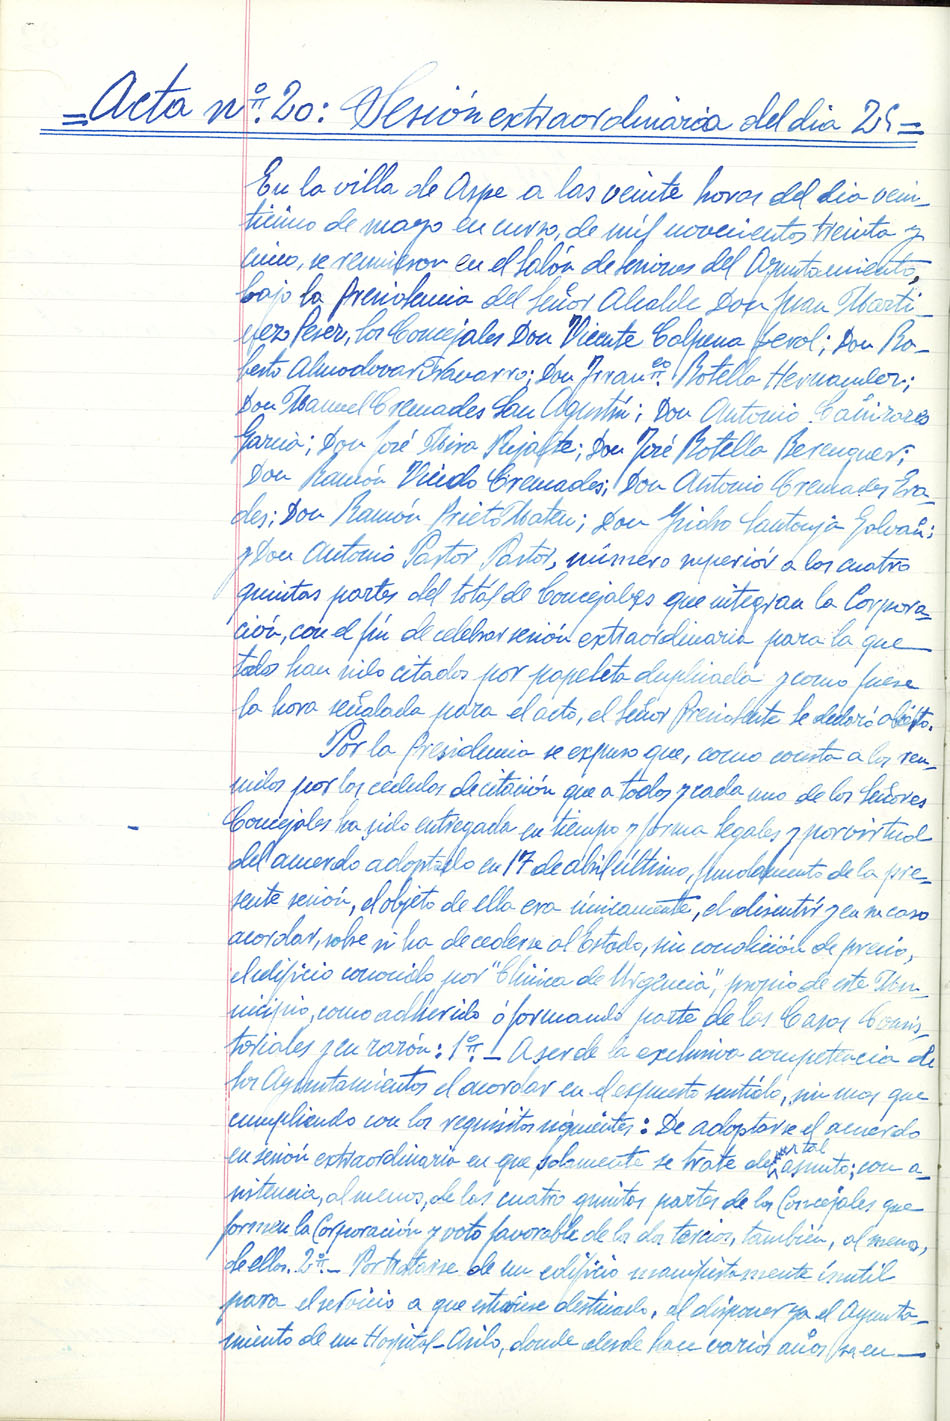 = Acta nº. 20: Sesión extraordinaria del dia 25 =
En la villa de Aspe a las veinte horas del dia vein-
ticinco de mayo en curso, de mil novecientos treinta y
cinco, se reunieron en el Salón de sesiones del Ayuntamiento,
bajo la Presidencia del Señor Alcalde Don Juan Marti-
nez Peser, los Concejales Don Vicente Calpena Cerol; Don Ro-
berto Almodovar Navarro; Don Franco. Botella Hernandez;
Don Manuel Cremades San Agustín; Don Antonio Cañizares
Garcia; Don José Mira Rijalte; Don José Botella Berenguer;
Don Ramón Vicedo Cremades; Don Antonio Cremades Era-
des; Don Ramón Prieto Mateu; Don Ysidro Santonja Galvañ;
y Don Antonio Pastor Pastor, número superiór a los cuatro
quintas partes del totál de Concejales que integran la Corpora-
ción, con el fín de celebrar sesión extraordinaria para la que
todos han sido citados por papeleta duplicada y como fuese
la hora señalada para el acto, el Señor Presidente le declaró abierto.
Por la Presidencia se expuso que, como consta a los reu-
nidos por los cedulas de citación que a todos y cada uno de los Señores
Concejales ha sido entregada en tiempo y forma legales y por virtud
del acuerdo adoptado en 17 de abril último, fundamento de la pre-
sente sesión, el objeto de ella era únicamente, el discutír y en su caso
acordar, sobre si ha de cederse al Estado, sin condición de precio,
el edificio conocido por "Clinica de Urgencia", propio de este Mu-
nicipio, como adherido ó formando parte de las Casas Consis-
toriales y en razón: 1º.- A ser de la exclusiva competencia de
los Ayuntamientos el acordar en el expuesto sentido, sin mas que
cumpliendo con los requisitos siguientes: De adoptarse el acuerdo
en sesión extraordinaria en que solamente se trate de tal asunto; con a-
sistencia, al menos, de las cuatro quintas partes de los Concejales que
formen la Corporación y voto favorable de los dos tercios, también, al menos,
de ellos. 2º.- Por tratarse de un edificio manifiestamente inutil
para el servicio a que estuviese destinado, al disponer ya el Ayunta-
miento de un Hospital-Asilo, donde desde hace varios años ya en-